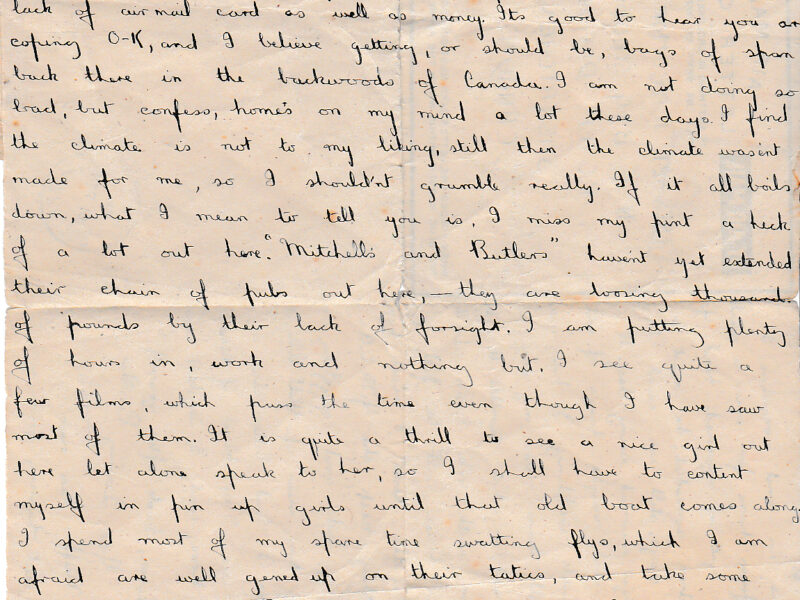 lack of air mail card as well as money. Its good to hear you ar
coping O-K, and I believe getting, or should be, bags of span
back there in the backwoods of Canada. I am not doing so
bad, but confess, home's on my mind a lot these days. I find
the climate is not to my liking, still then the climate was'ent
made for me, so I should'nt grumble really. If it all boils
down, what I mean to tell you is, I miss my pint a heck
of a lot out here. "Mitchells and Butlers" havent yet extended
their chain of pubs out here, — they are loosing thousand
of pounds by their lack of forsight. I am putting plenty
of hours in, work and nothing but. I see quite a
few films, which puss the time even though I have saw
most of them. It is quite a thrill to see a nice girl out
here let alone speak to her, so I shall have to content
myself in pin up girls until that old boat comes along.
I spend most of my spare time swatting flys, which I am
afraid are well gened up on their tatics, and take some